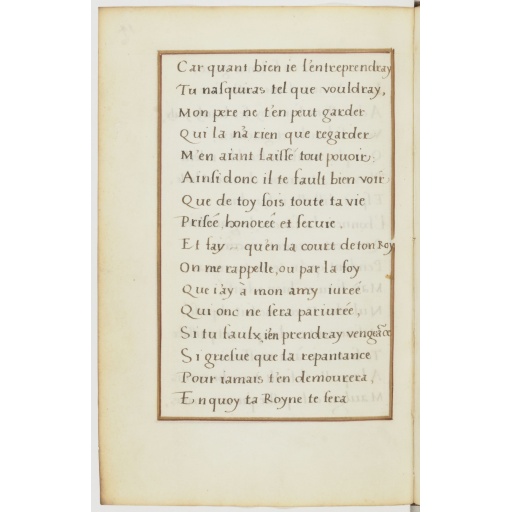 Car quant bien ie ſentreprendray
Tu naſquiras tel que vouldray,
Mon pere ne t'en peut garder
Qui la n'a rien que regarder
M'en aiant laiſſé tout pouoir,
Ainſi donc il te fault bien voir
Que de toy ſois toute ta vie
Priſeé, honoreé et ſeruie.
Et fay qu'en la court de ton Roy
On me rappelle, ou par la foy
Que i'ay à mon amy iureé
Qui onc ne ſera pariureé,
Si tu faulx, i'en prendray vengeāce
Si grieſue que la repantance
Pour iamais t'en demourera,
En quoy ta Royne te ſera